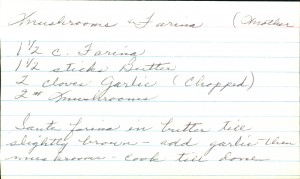 Mushrooms & Farina (Mother
1 1/2 c. Farina
1 1/2 sticks Butter
2 cloves Garlic (Chopped)
2 # Mushrooms
Saute farina in butter till
slightly brown - add garlic then
mushrooms - cook till done